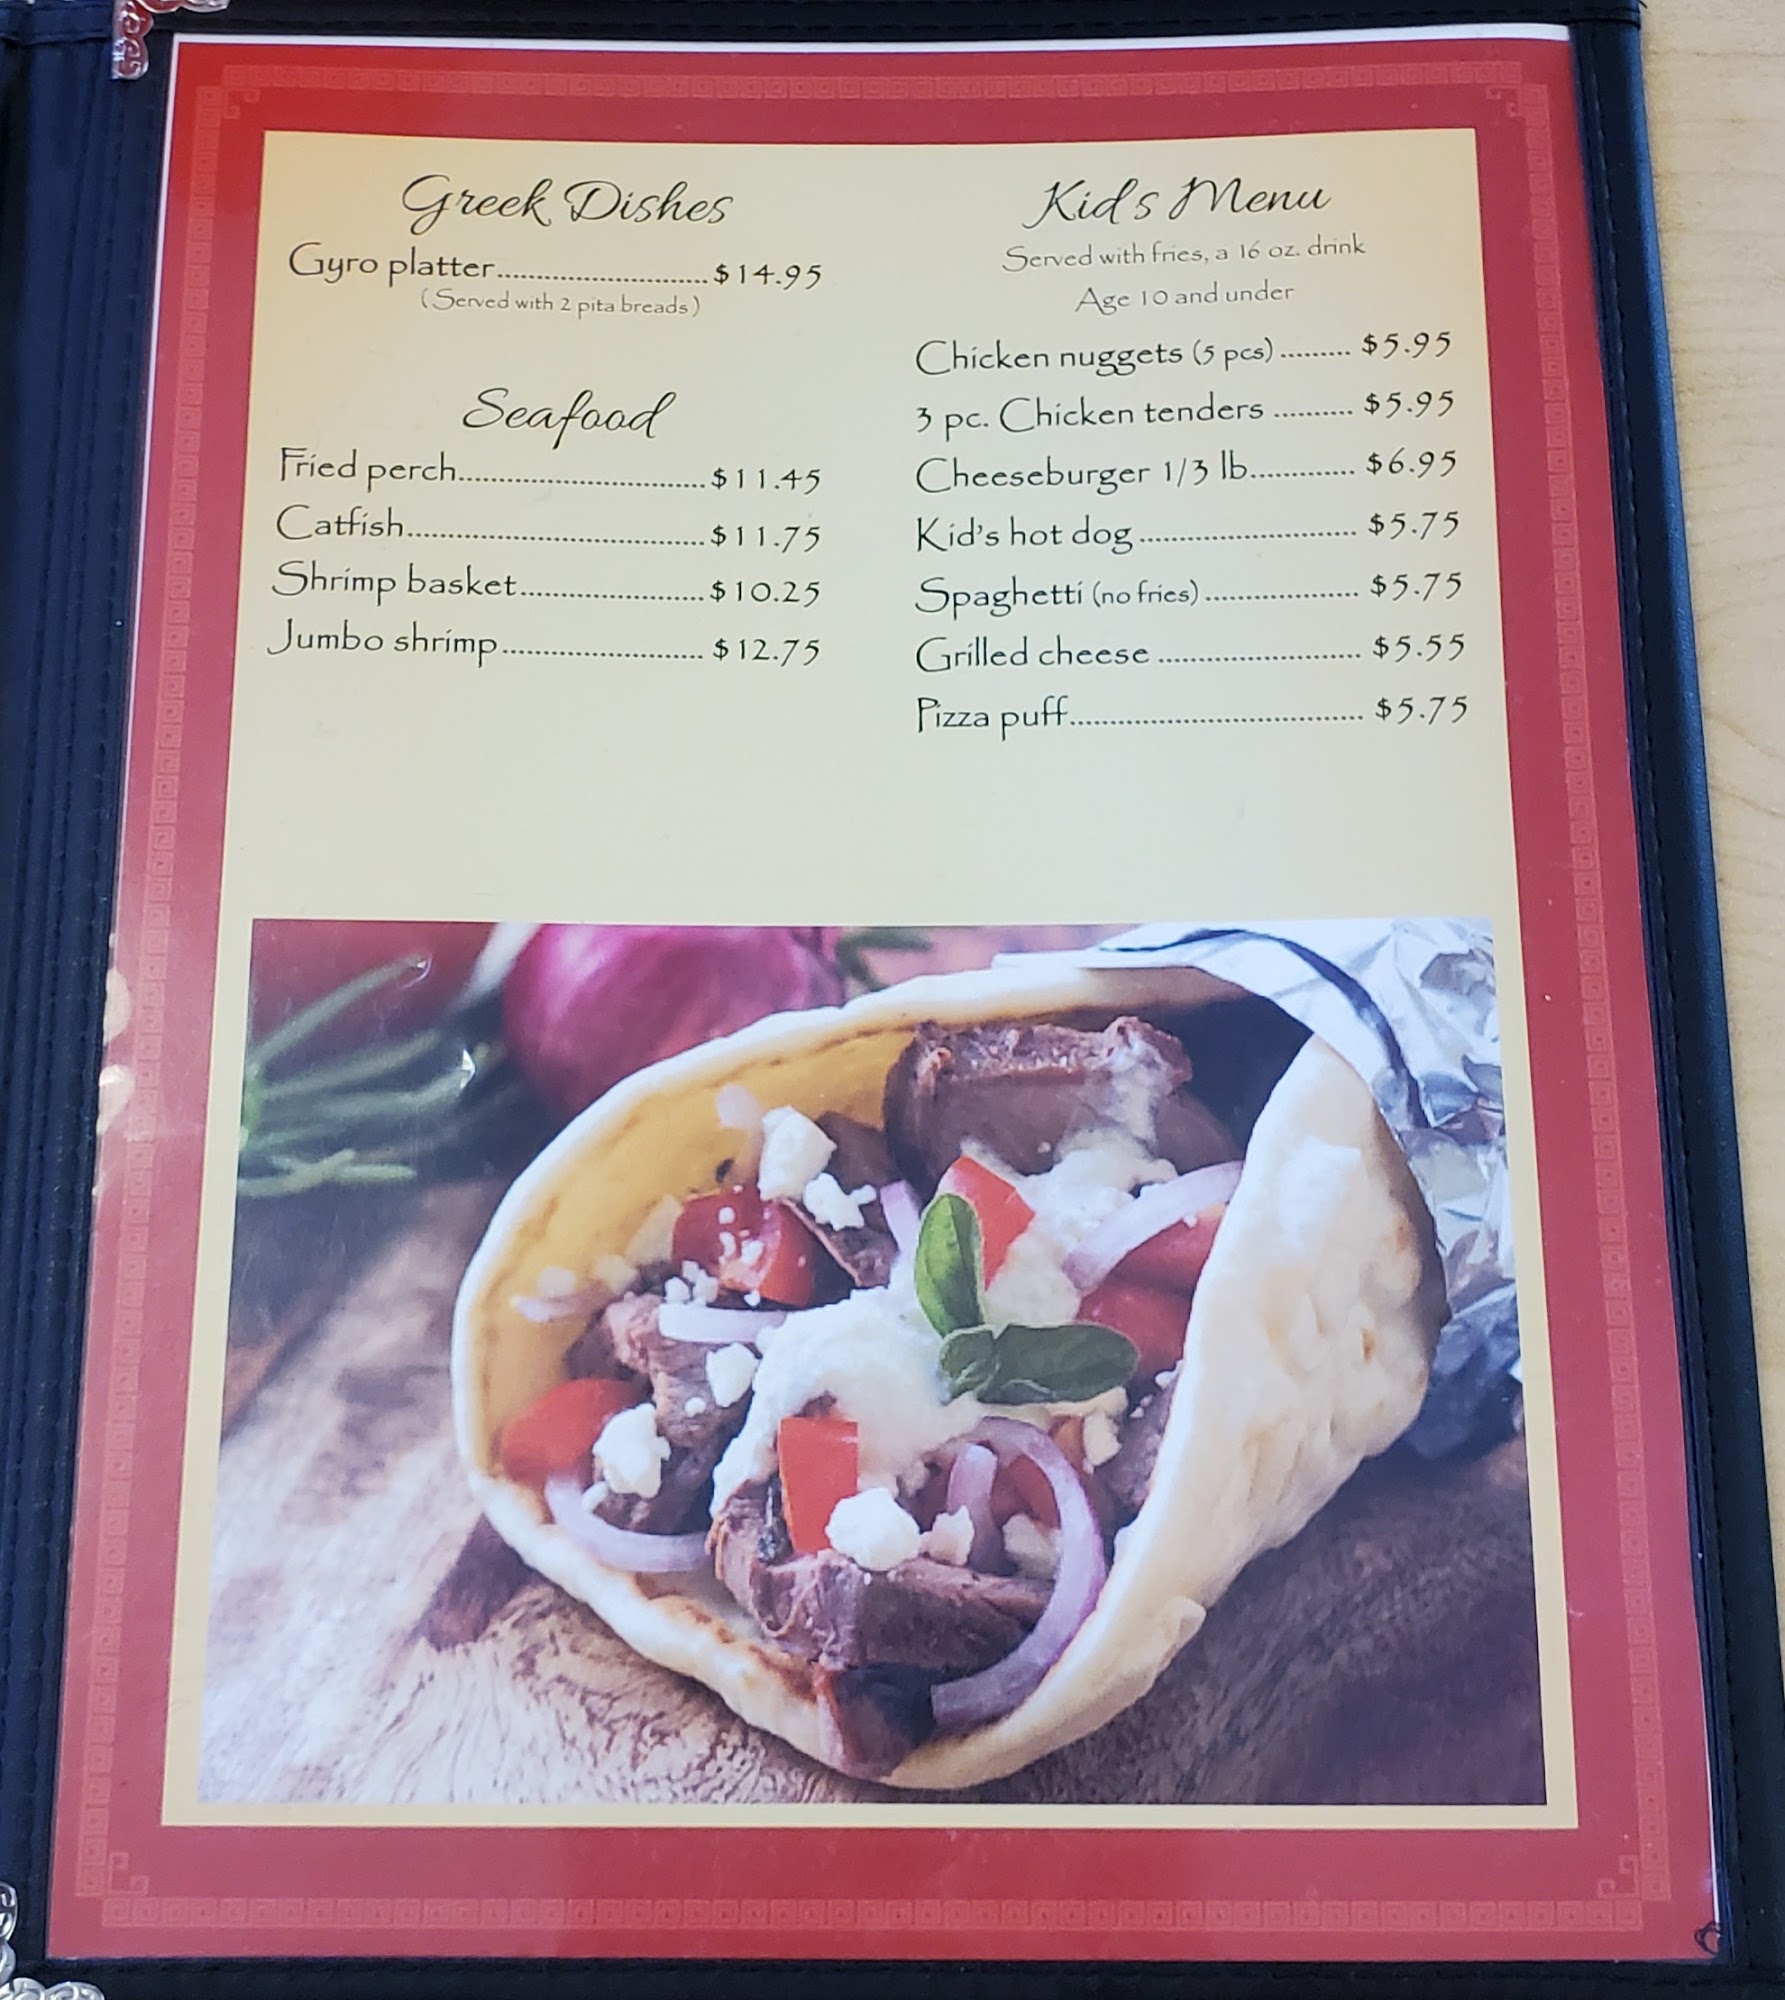 Greek Dishes
Gyro platter..........................$14.95
(Served with 2 pita breads)
Seafood
Fried perch..............................$11.45
Catfish....................................$11.75
Shrimp basket.......................$10.25
Jumbo shrimp.........................$12.75
Kid's Menu
Served with fries, a 16 oz. drink
Age 10 and under
Chicken nuggets (5 pcs)......... $5.95
3 pc. Chicken tenders .......... $5.95
Cheeseburger 1/3 lb............. $6.95
Kid's hot dog........................... $5.75
Spaghetti (no fries)................... $5.75
Grilled cheese ......................... $5.55
Pizza puff.................................... $5.75